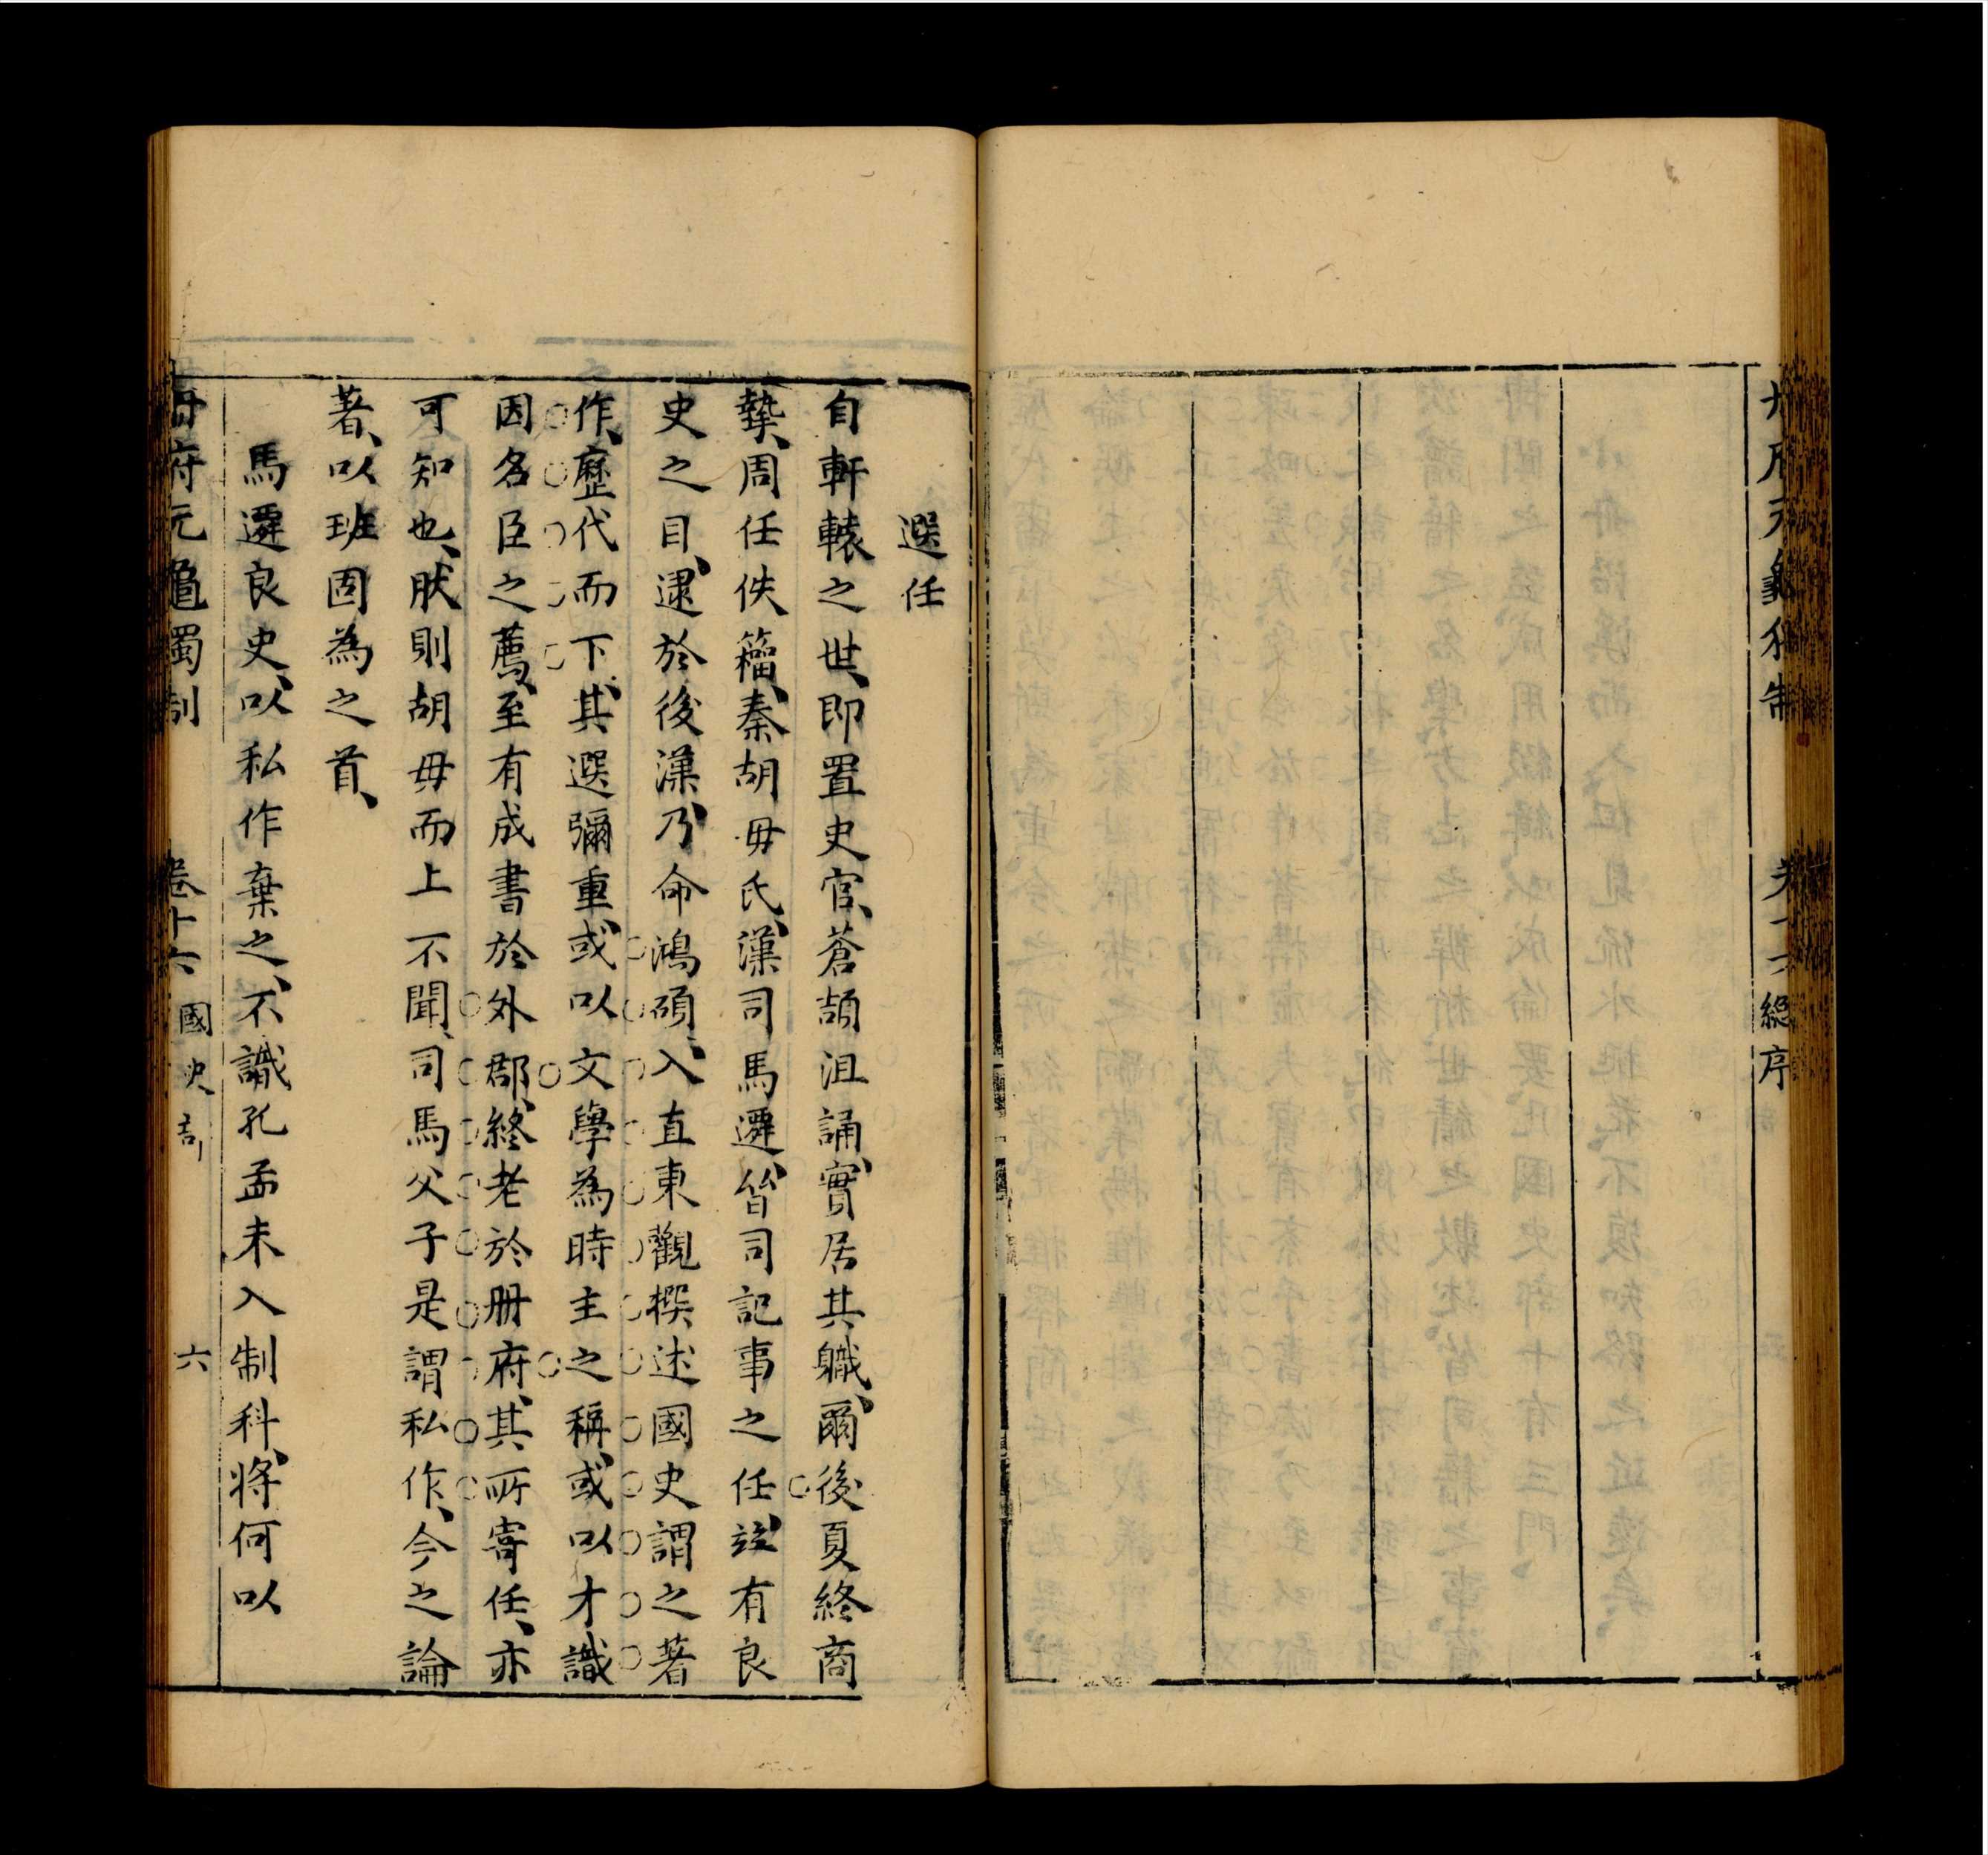 冊府元龜獨制
卷十六
總序
選任
自軒轅之世、即置史官、蒼頡沮誦、實居其職、爾後夏終商
摯、周任佚籀、秦胡毋氏、漢司馬遷、皆司記事之任、竝有良
史之目、逮於後漢、乃命鴻碩、入直東觀、撰述國史謂之著
作、歷代而下、其選彌重、或以文學為時主之稱、或以才識
因名臣之薦、至有成書於外郡、終老於冊府、其所寄任、亦
可知也、肰則胡毋而上不聞、司馬父子是謂私作、今之論
著、以班固為之首、
馬遷良史、以私作棄之、不識孔孟未入制科、將何以
冊府元龜獨制
卷十六
國史部
六